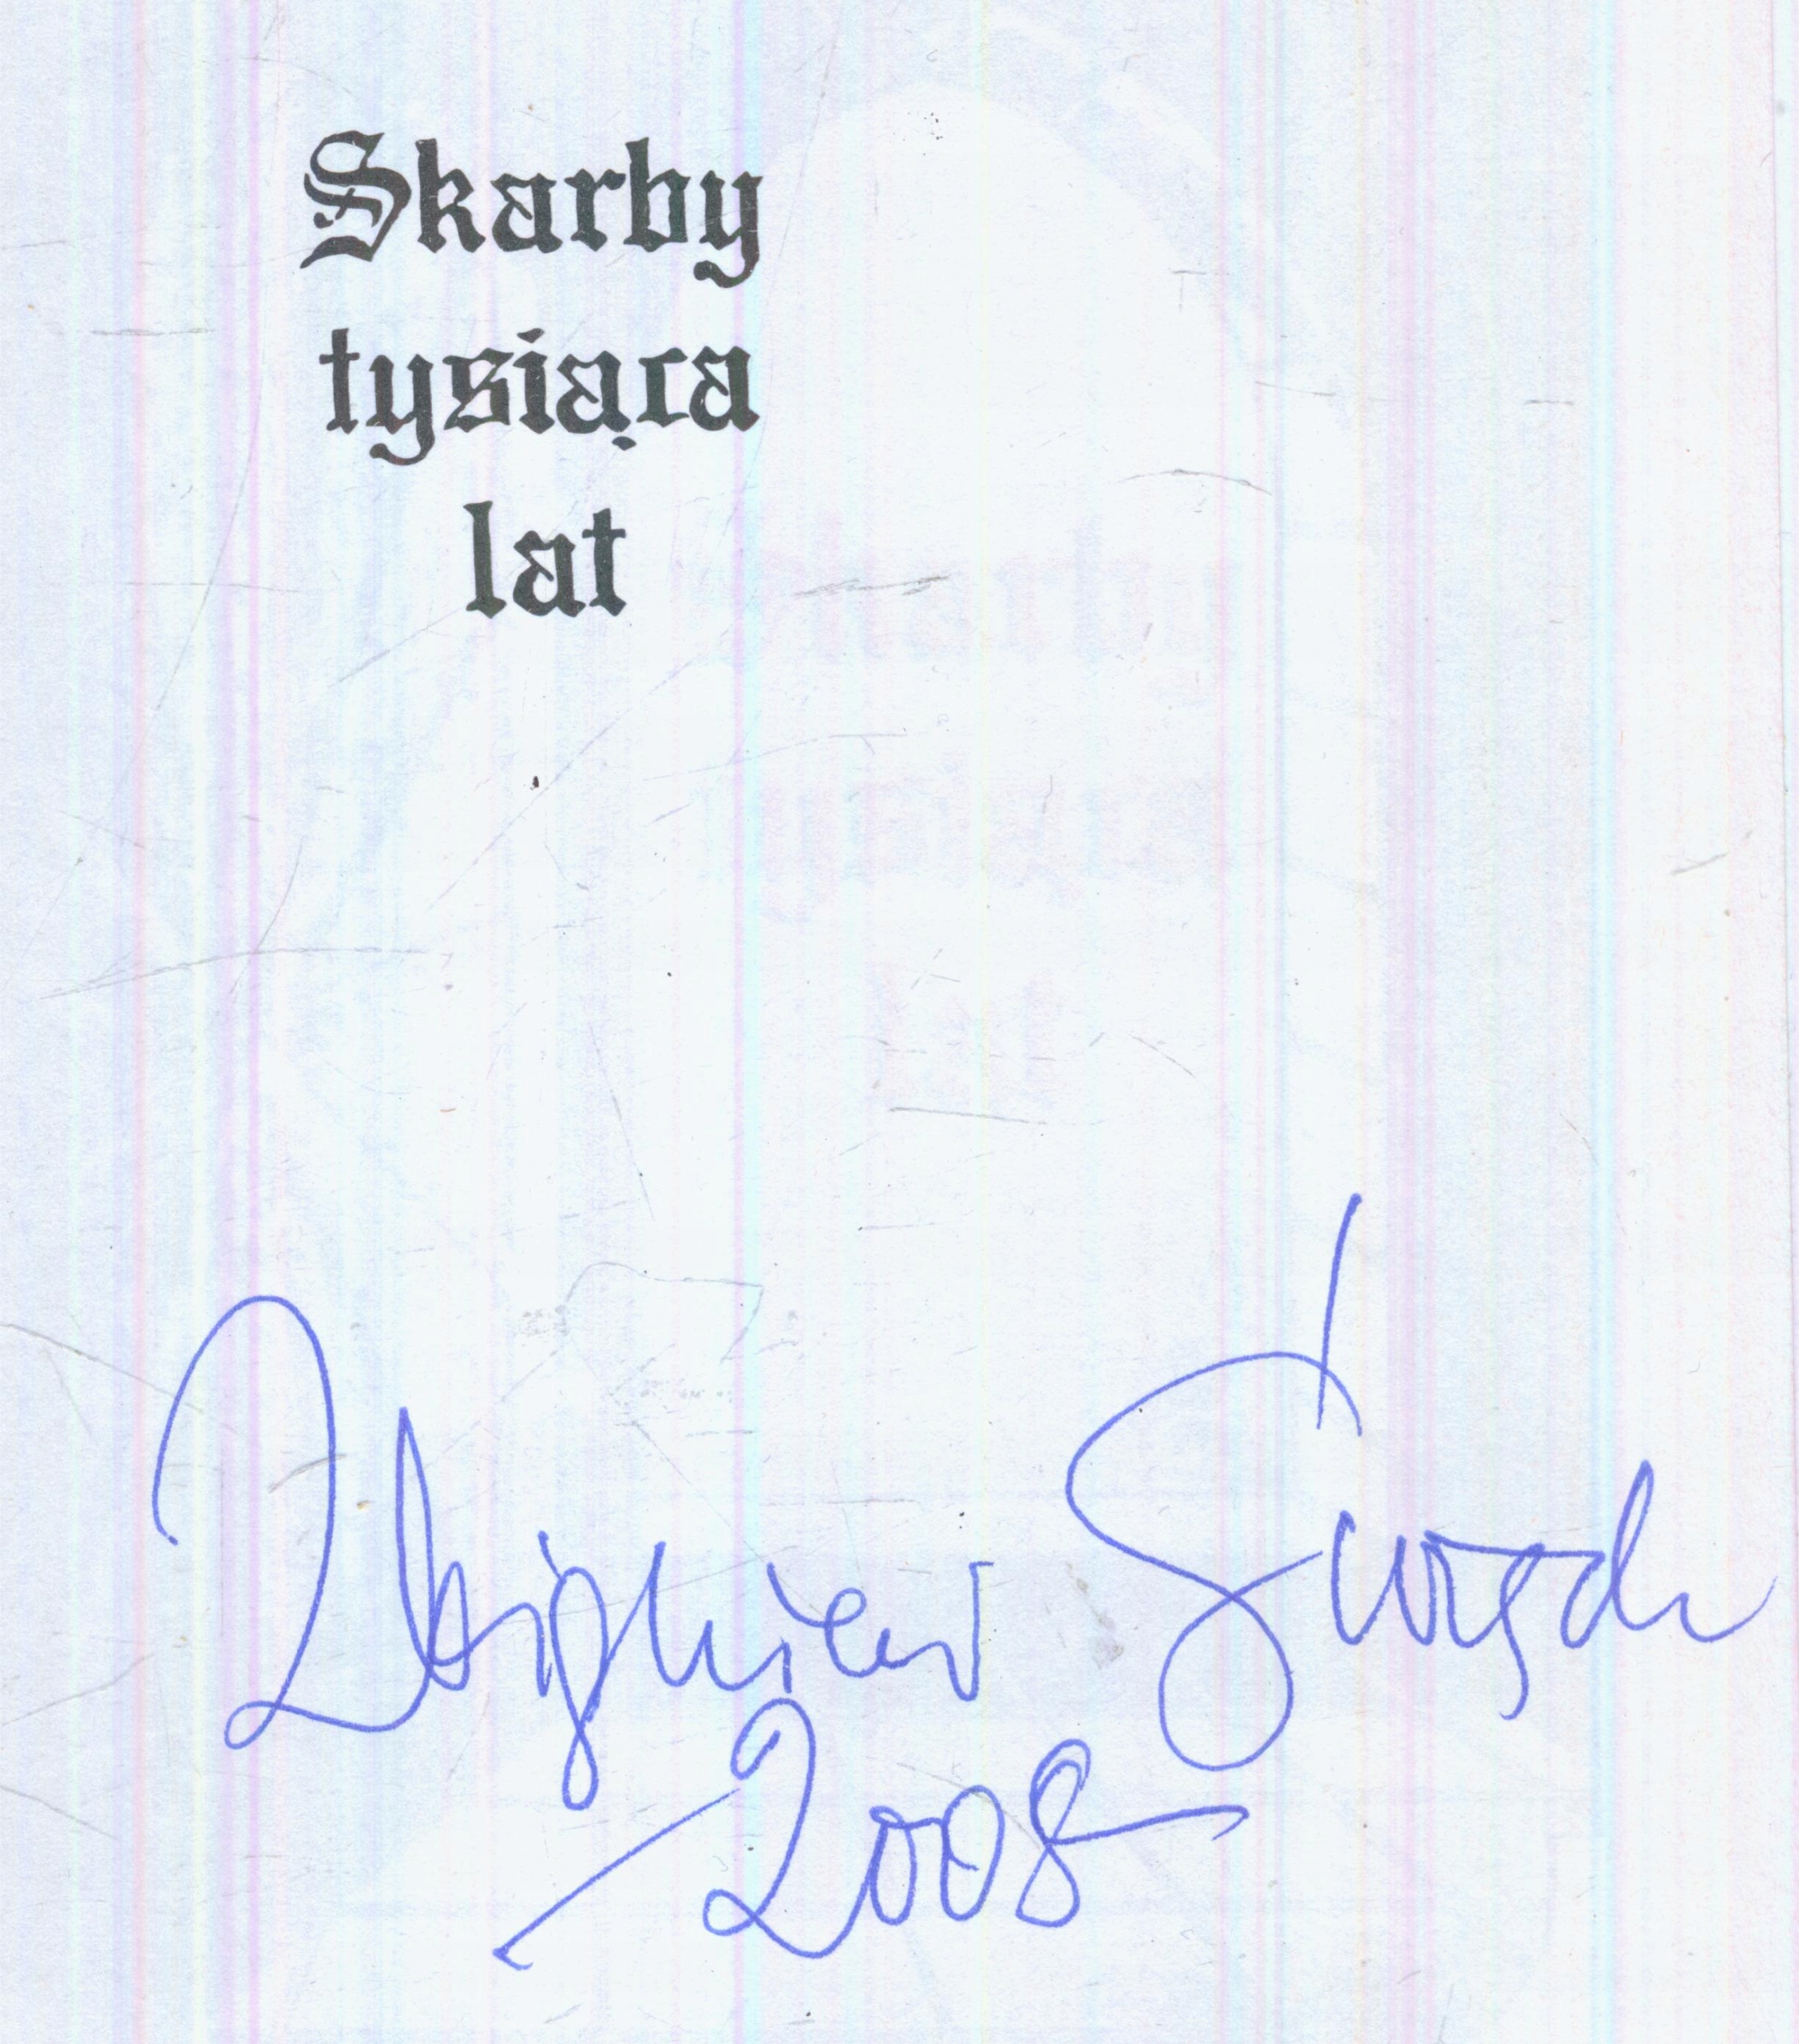 Skarby
tysiąca
lat
Zbigniew Święch
2008